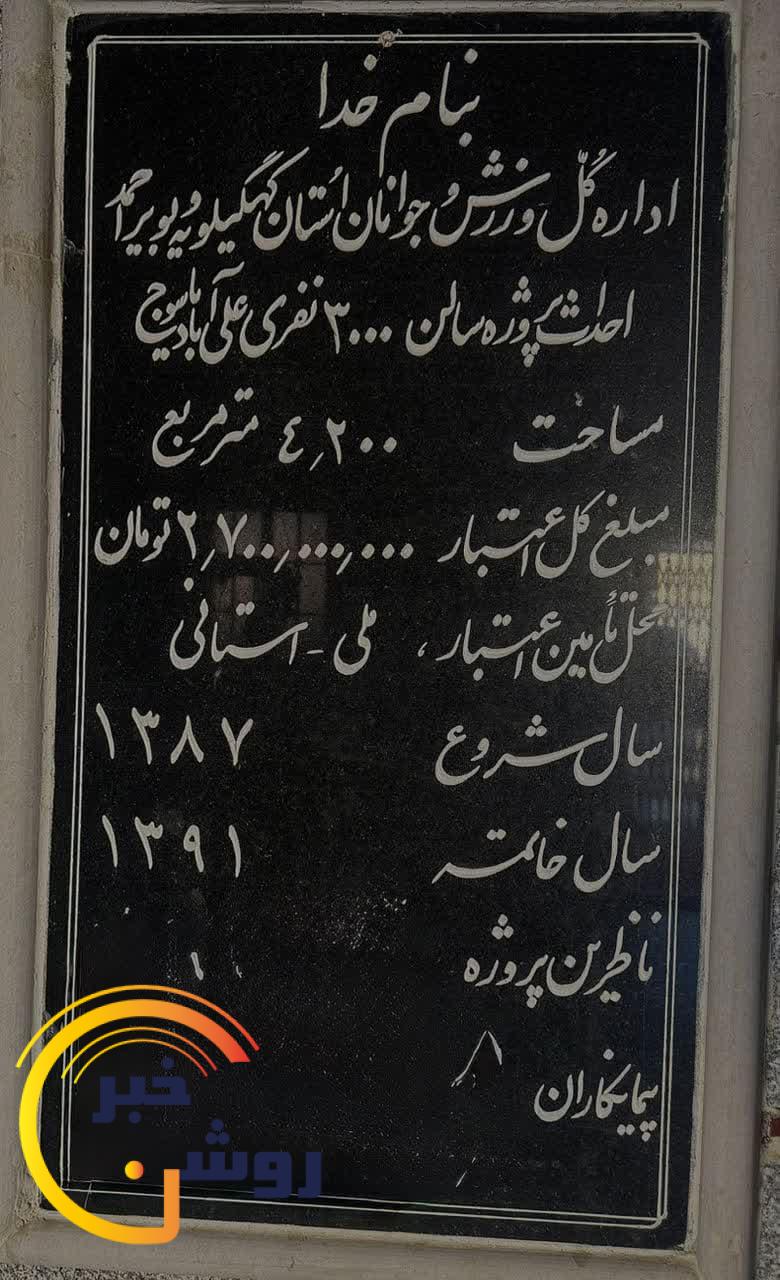 بنام خدا
اداره کُلّ ورزش و جوانان اُستان کهگیلویه و بویر احمد
احداث پروژه سالن ۳۰۰۰ نفری علی آباد یاسوج
مساحت ۴٫۲۰۰ مترمربع
مبلغ کل اعتبار ۲٫۷۰۰٫۰۰۰٫۰۰۰ تومان
محل تأمین اعتبار ، ملی - استانی
سال شروع ۱۳۸۷
سال خاتمه ۱۳۹۱
ناظرین پروژه
پیمانکاران
خبر
روشن